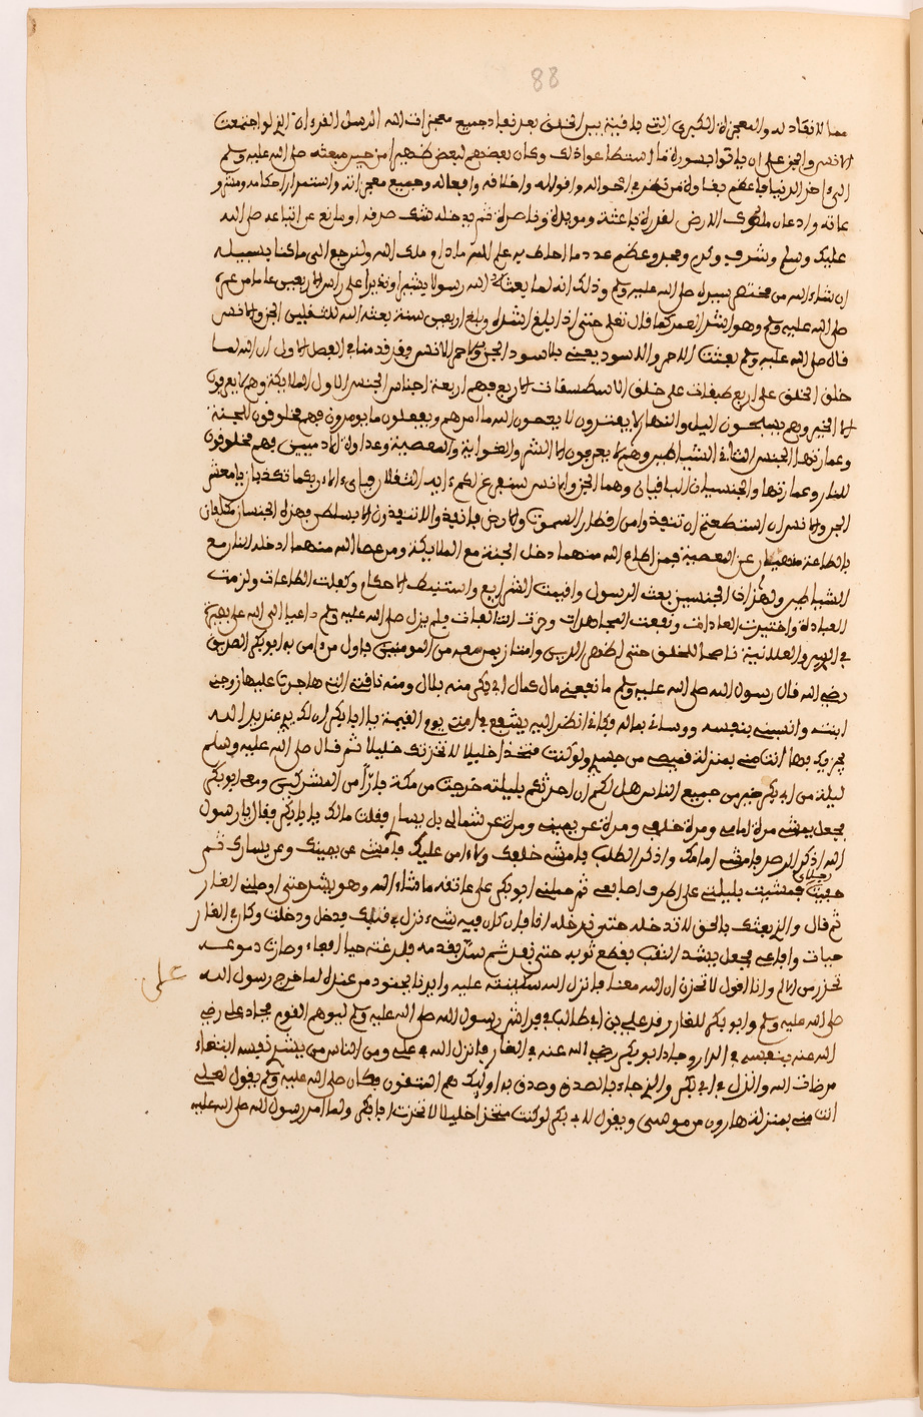 88
مما لا نفاد له والمعجزة الكبرى التي باقية بين الخلق بعد نفاد جميع معجزات الله الرسل القرءان الذي لو اجتمعت
الانس والجن على ان ياتوا بسورة ما استطاعوا ذلك وكان بعضهم لبعض ظهيرا من حين مبعثه صلى الله عليه وسلم
الى اخر الدنيا واقواله وافعاله وجميع معجزاته واستمرار احكامه
ملوك الارض
عليه وسلم وشرف وكرم ومجد وعظم عدد ما احاط به علم الله ما دام ملك الله ولنرجع الى ما كنا بسبيله
ان شاء الله من صلى الله عليه وسلم وذلك انه لما بعثه الله رسولا بشيرا ونذيرا على راس اربعين عاما من عمره
صلى الله عليه وسلم وهو اشد العمر كما قال تعلى حتى اذا بلغ اشده وبلغ اربعين سنة بعثه الله للثقلين الجن والانس
قال صلى الله عليه وسلم بعثت للاحمر والاسود يعني بالاسود الجن وبالاحمر الانس وقد قدمنا في الفصل الاول ان الله لما
خلق الخلق على اربع طبقات على خلق الاسطقسات الاربع فهم اربعة اجناس الجنس الاول الملايكة وهم لا يعرفون
الا الخير وهم يسبحون اليل والنهار لا يفترون لا يعصون الله ما امرهم ويفعلون ما يومرون فهم مخلوقون للجنة
وعمارتها الجنس الثاني الشياطين وهم لا يعرفون الا الشر والغواية والمعصية وعداوة الادميين فهم مخلوقون
للنار وعمارتها والجنسان الباقيان وهما الجن والانس سنفرغ لكم ايه الثقلان فباي ءالاء ربكما تكذبان يا معشر
الجن والانس ان استطعتم ان تنفذوا من اقطار السموت والارض فانفذوا لا تنفذون الا بسلطن فهذان الجنسان مكلفان
بالطاعة عن المعصية فمن اطاع الله منهما دخل الجنة مع الملايكة ومن عصا الله منهما ادخله النار مع
الشياطين ولهذان الجنسين بعث الرسول واقيمت الشرايع واستنبطت الاحكام وفعلت الطاعات ولزمت
العبادة واختيرت العادات ونفعت المجاهدات فلم يزل صلى الله عليه وسلم داعيا الى الله على بصيرة
في السر والعلانية ناصحا للخلق حتى اظهر الدين وامتاز بمن معه من المومنين فاول من ءامن به ابو بكر الصديق
رضي الله قال رسول الله صلى الله عليه وسلم ما نفعني مال كمال ابي بكر منه بلال ومنه ناقتي التي هاجرت عليها زوجني
ابنته وانسني بنفسه وواساني بماله فكاني انظر اليه يشفع في امتي يوم القيمة يا ابا بكر ان لك يدا عند الله
يجزيك بها انت مني بمنزلة قميصي من جسدي ولو كنت متخذا خليلا لاتخذتك خليلا ثم قال صلى الله عليه وسلم
ليلة من ابي بكر خير من جميع الناس هل لكم ان احدثكم بليلته خرجت من مكة فارا من المشركين ومعي ابو بكر
فجعل يمشي مرة امامي ومرة خلفي ومرة عن يميني ومرة عن شمالي بل يسار فقلت مالك يا ابا بكر فقال يا رسول
الله اذكر الرصد فامشي امامك واذكر الطلب فامشي خلفك ولا ءامن عليك فامشي عن يمينك وعن يسارك ثم
حفيت رجلاي فمشيت بليلتي على اطراف اصابعي ثم حملني ابو بكر على عاتقه ما شاء الله وهو يشتد حتى اوصلني الغار
ثم قال والذي بعثك بالحق لا تدخله حتى ندخله انا فان كان فيه شيء نزل بي قبلك فدخل ودخلت وكان في الغار
حيات وافاعي فجعل يشد النقب بقطع ثوبه حتى نفد ثم سد بقدمه فلدغته حيا افعاء وصارت دموعه
تحذر من الالم وانا اقول لا تحزن ان الله معنا فانزل الله سكينته عليه وايدنا بجنود من عنده لما خرج رسول الله
صلى الله عليه وسلم وابو بكر للغار رقد علي بن ابي طالب في فراش رسول الله صلى الله عليه وسلم ليوهم القوم فجاد علي رضي
علي
الله عنه بنفسه في الدار وجاد ابو بكر رضي الله عنه في الغار فانزل الله في علي ومن الناس من يشري نفسه ابتغاء
مرضات الله وانزل في ابي بكر والذي جاء بالصدق وصدق به اوليك هم المتقون فكان صلى الله عليه وسلم يقول لعلي
انت مني بمنزلة هارون من موسى ويقول لابي بكر لو كنت متخذا خليلا لاتخذت ابا بكر ولما امر رسول الله صلى الله عليه